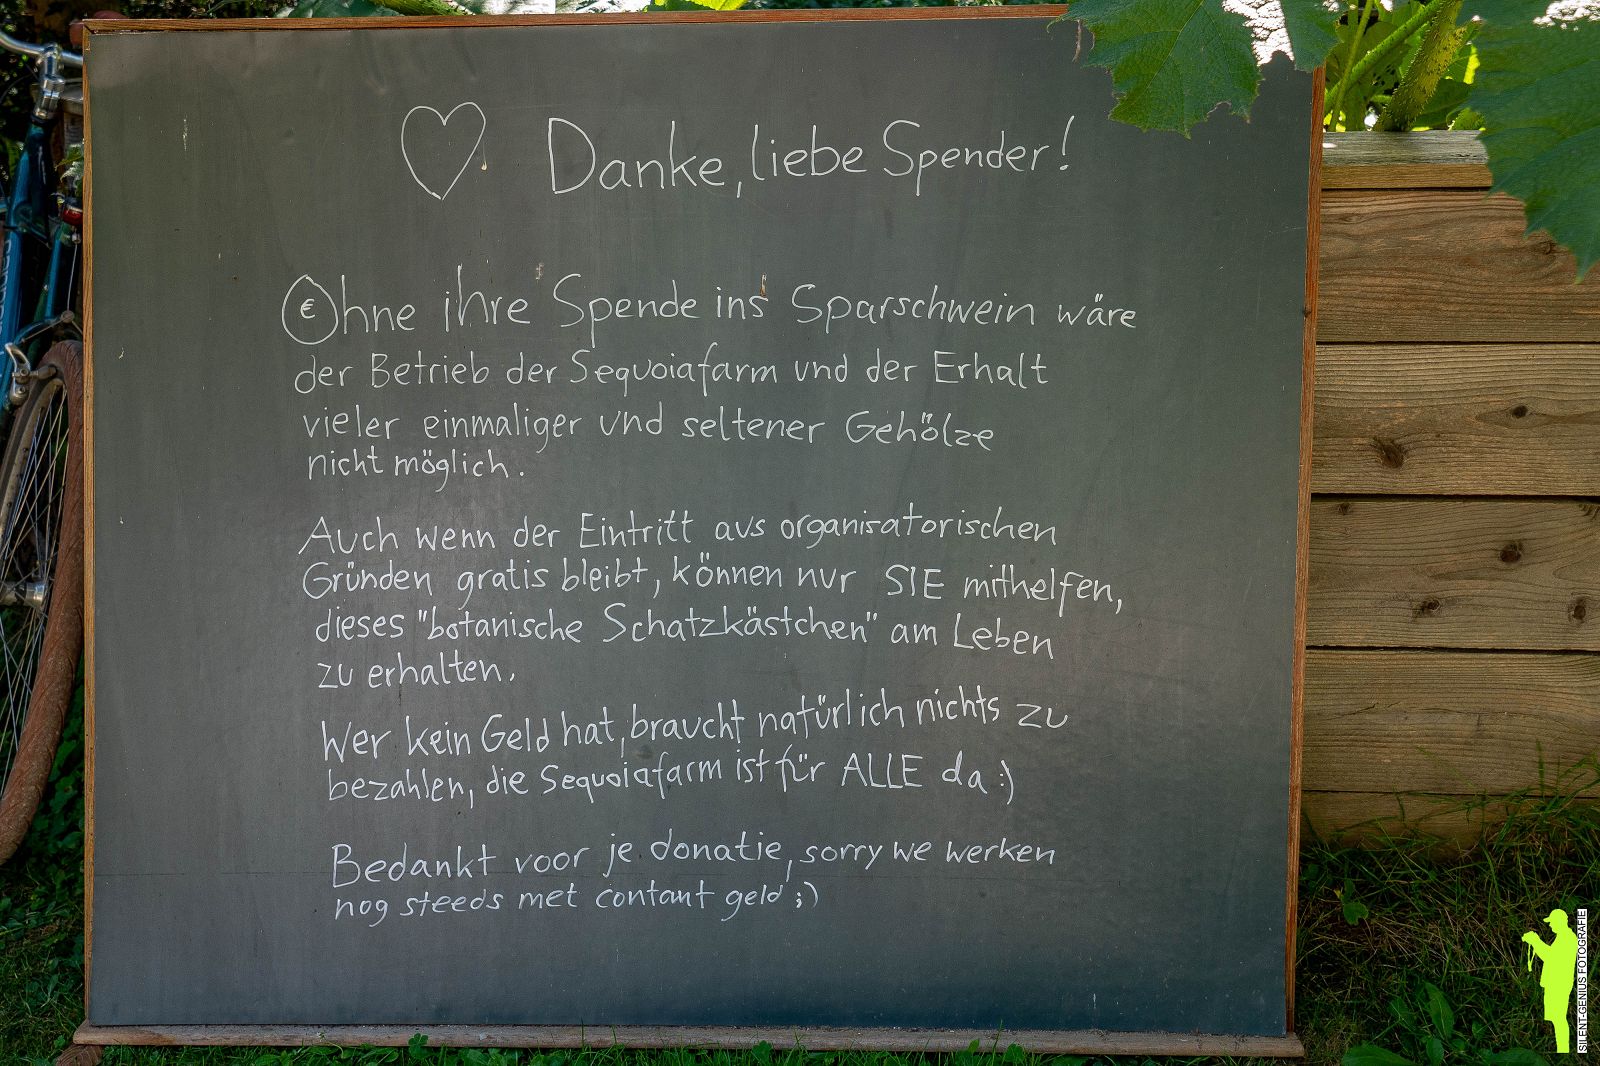 Danke, liebe Spender!
Ohne ihre Spende ins Sparschwein wäre
der Betrieb der Sequoiafarm und der Erhalt
vieler einmaliger und seltener Gehölze
nicht möglich.
Auch wenn der Eintritt aus organisatorischen
Gründen gratis bleibt, können nur SIE mithelfen,
dieses "botanische Schatzkästchen" am Leben
zu erhalten.
Wer kein Geld hat, braucht natürlich nichts zu
bezahlen, die Sequoiafarm ist für ALLE da :)
Bedankt voor je donatie, sorry we werken
nog steeds met contant geld ;)
SILENT-GENIUS FOTOGRAFIE